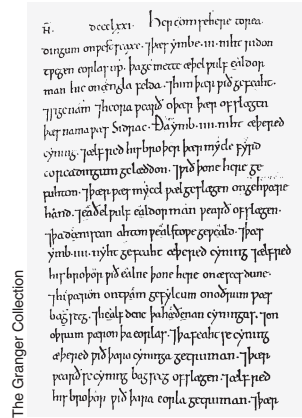 AN. dccclxxi. Her com se here to rea
dingum on west seaxe. ⁊þæs ymbe .iii. niht ridon
twegen eorlas up. þa gemette æþelwulf ealdor
man hie on engla felda. ⁊him þær wiþ gefeaht.
⁊sige nam. ⁊heora wearð oþer þær ofslægen
þæs nama wæs Sidrac. Ða ymb .iiii. niht æþered
cyning. ⁊ælfred his broþer þær mycle fyrd
to readingum gelæddon. ⁊wið þone here ge
fuhton. ⁊þær wæs mycel wælgeslægen on gehwæþre
hand. ⁊æðelwulf ealdorman wearð ofslægen.
⁊þa deniscan ahton wælstowe geweald. ⁊þæs
ymb .iiii. niht gefeaht æþered cyning ⁊ælfred
his broþor wið ealne þone here on æscesdune.
⁊hi wæron on twam gefylcum on oðrum wæs
bagsecg. ⁊healfdene þa hæðenan cyningas. ⁊on
oþrum wæron þa eorlas. ⁊þa feaht se cyning
æþered wið þara cyninga getruman. ⁊þær
wearð se cyning bagsecg ofslægen. ⁊ælfred
his broþor wið þara eorla getruman. ⁊þær
The Granger Collection